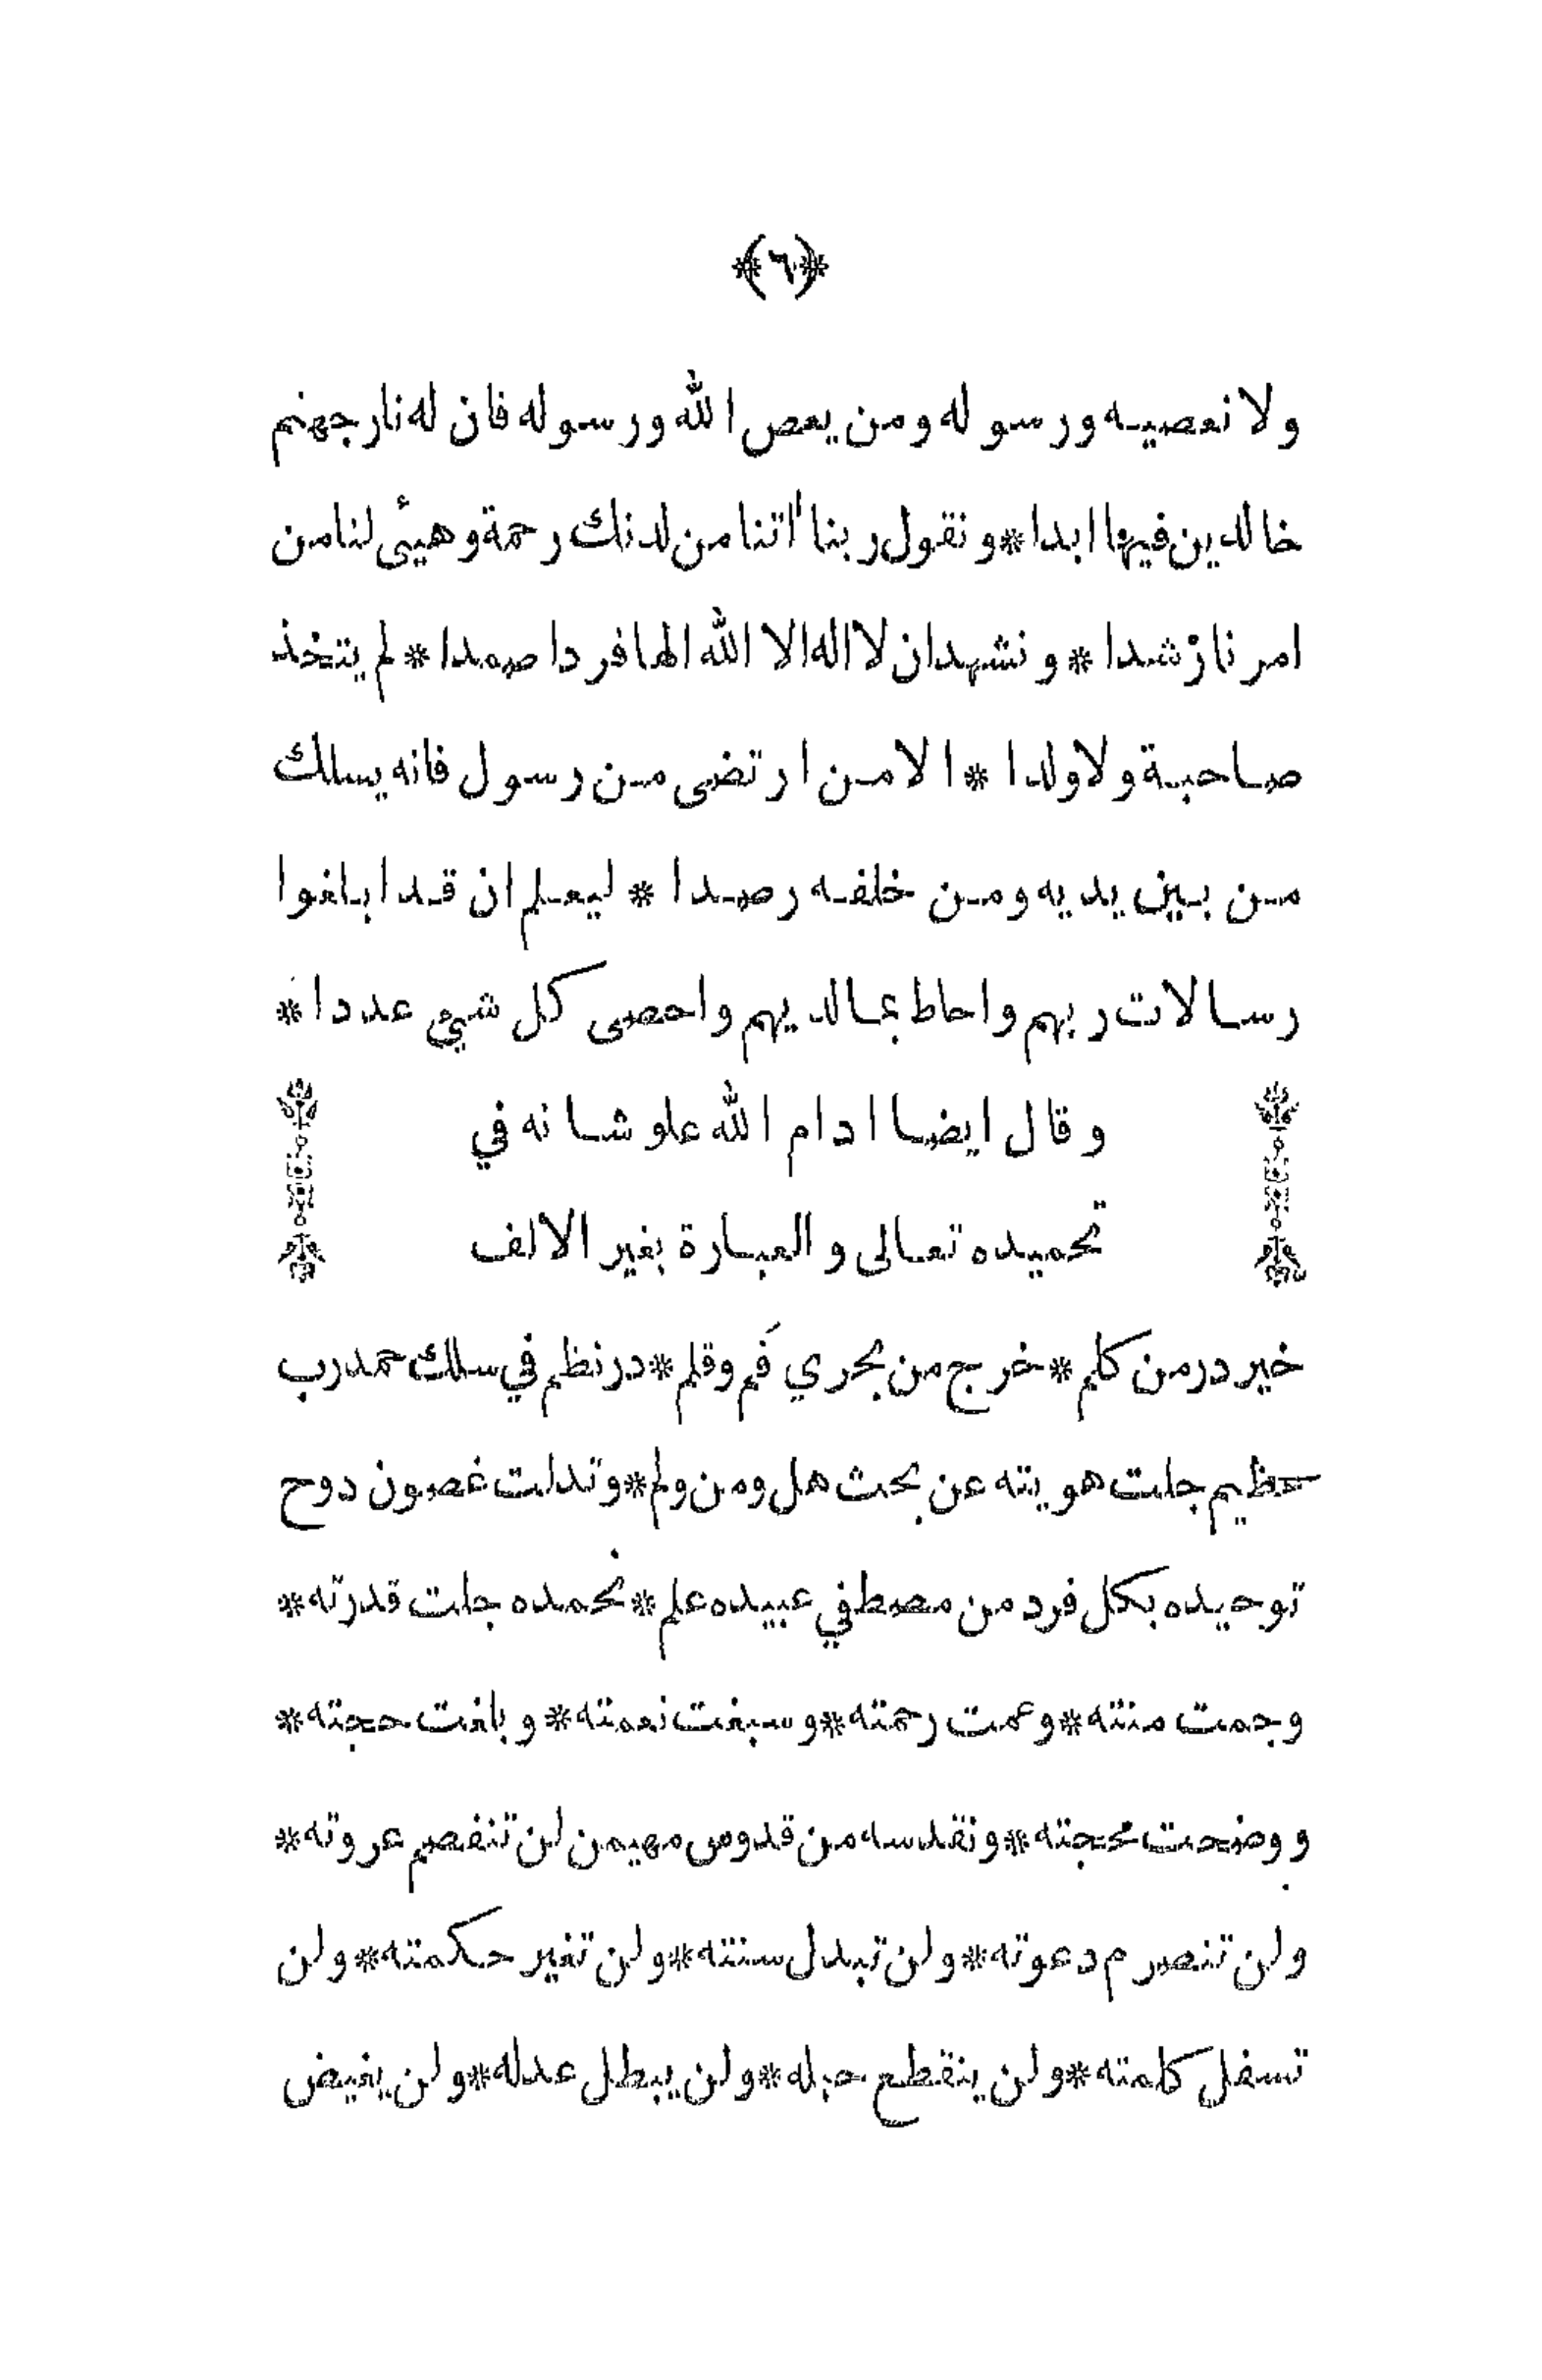 ﴿٦﴾
ولا نعصيه ورسوله ومن يعص الله ورسوله فان له نار جهنم
خالدين فيها ابدا * ونقول ربنا اٰتنا من لدنك رحمة وهيئ لنا من
امرنا رشدا * ونشهد ان لا اله الا الله الها فردا صمدا * لم يتخذ
صاحبة ولا ولدا * الا من ارتضى من رسول فانه يسلك
من بين يديه ومن خلفه رصدا * ليعلم ان قد ابلغوا
رسالات ربهم واحاط بمالديهم واحصى كل شيء عددا *
وقال ايضا ادام الله علو شانه في
تحميده تعالى والعبارة بغير الالف
خير در من كلم * خرج من بحري فَم وقلم * در نظم في سلك حمد رب
عظيم جلت هويته عن بحث هل ومن ولم * وتدلت غصون دوح
توحيده بكل فرد من مصطفي عبيده علم * نحمده جلت قدرته *
وجمت منته * وعمت رحمته * وسبغت نعمته * وبلغت حجته *
ووضحت محجته * ونقدسه من قدوس مهيمن لن تنفصم عروته *
ولن تنصرم دعوته * ولن تبدل سنته * ولن تغير حكمته * ولن
تسفل كلمته * ولن ينقطع حبله * ولن يبطل عدله * ولن يغيض